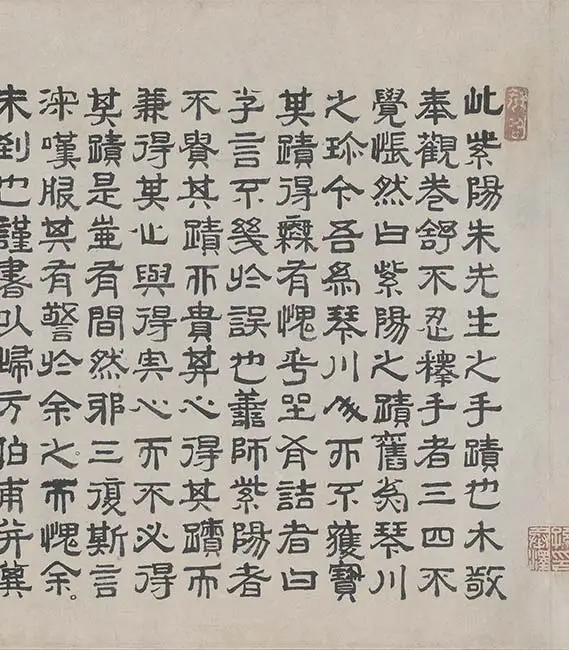 此紫陽朱先生之手蹟也木敬
奉觀卷舒不忍釋手者三四不
覺悵然曰紫陽之蹟舊為琴川
之珍今吾為琴川人而不獲寶
其蹟得無有愧乎坐有詰者曰
子言不幾於誤也善師紫陽者
不貴其蹟而貴其心得其蹟而
兼得其心與得其心而不必得
其蹟是豈有間然邪三復斯言
深嘆服其有警於余之而愧余
未到也謹書以歸方伯甫并冀